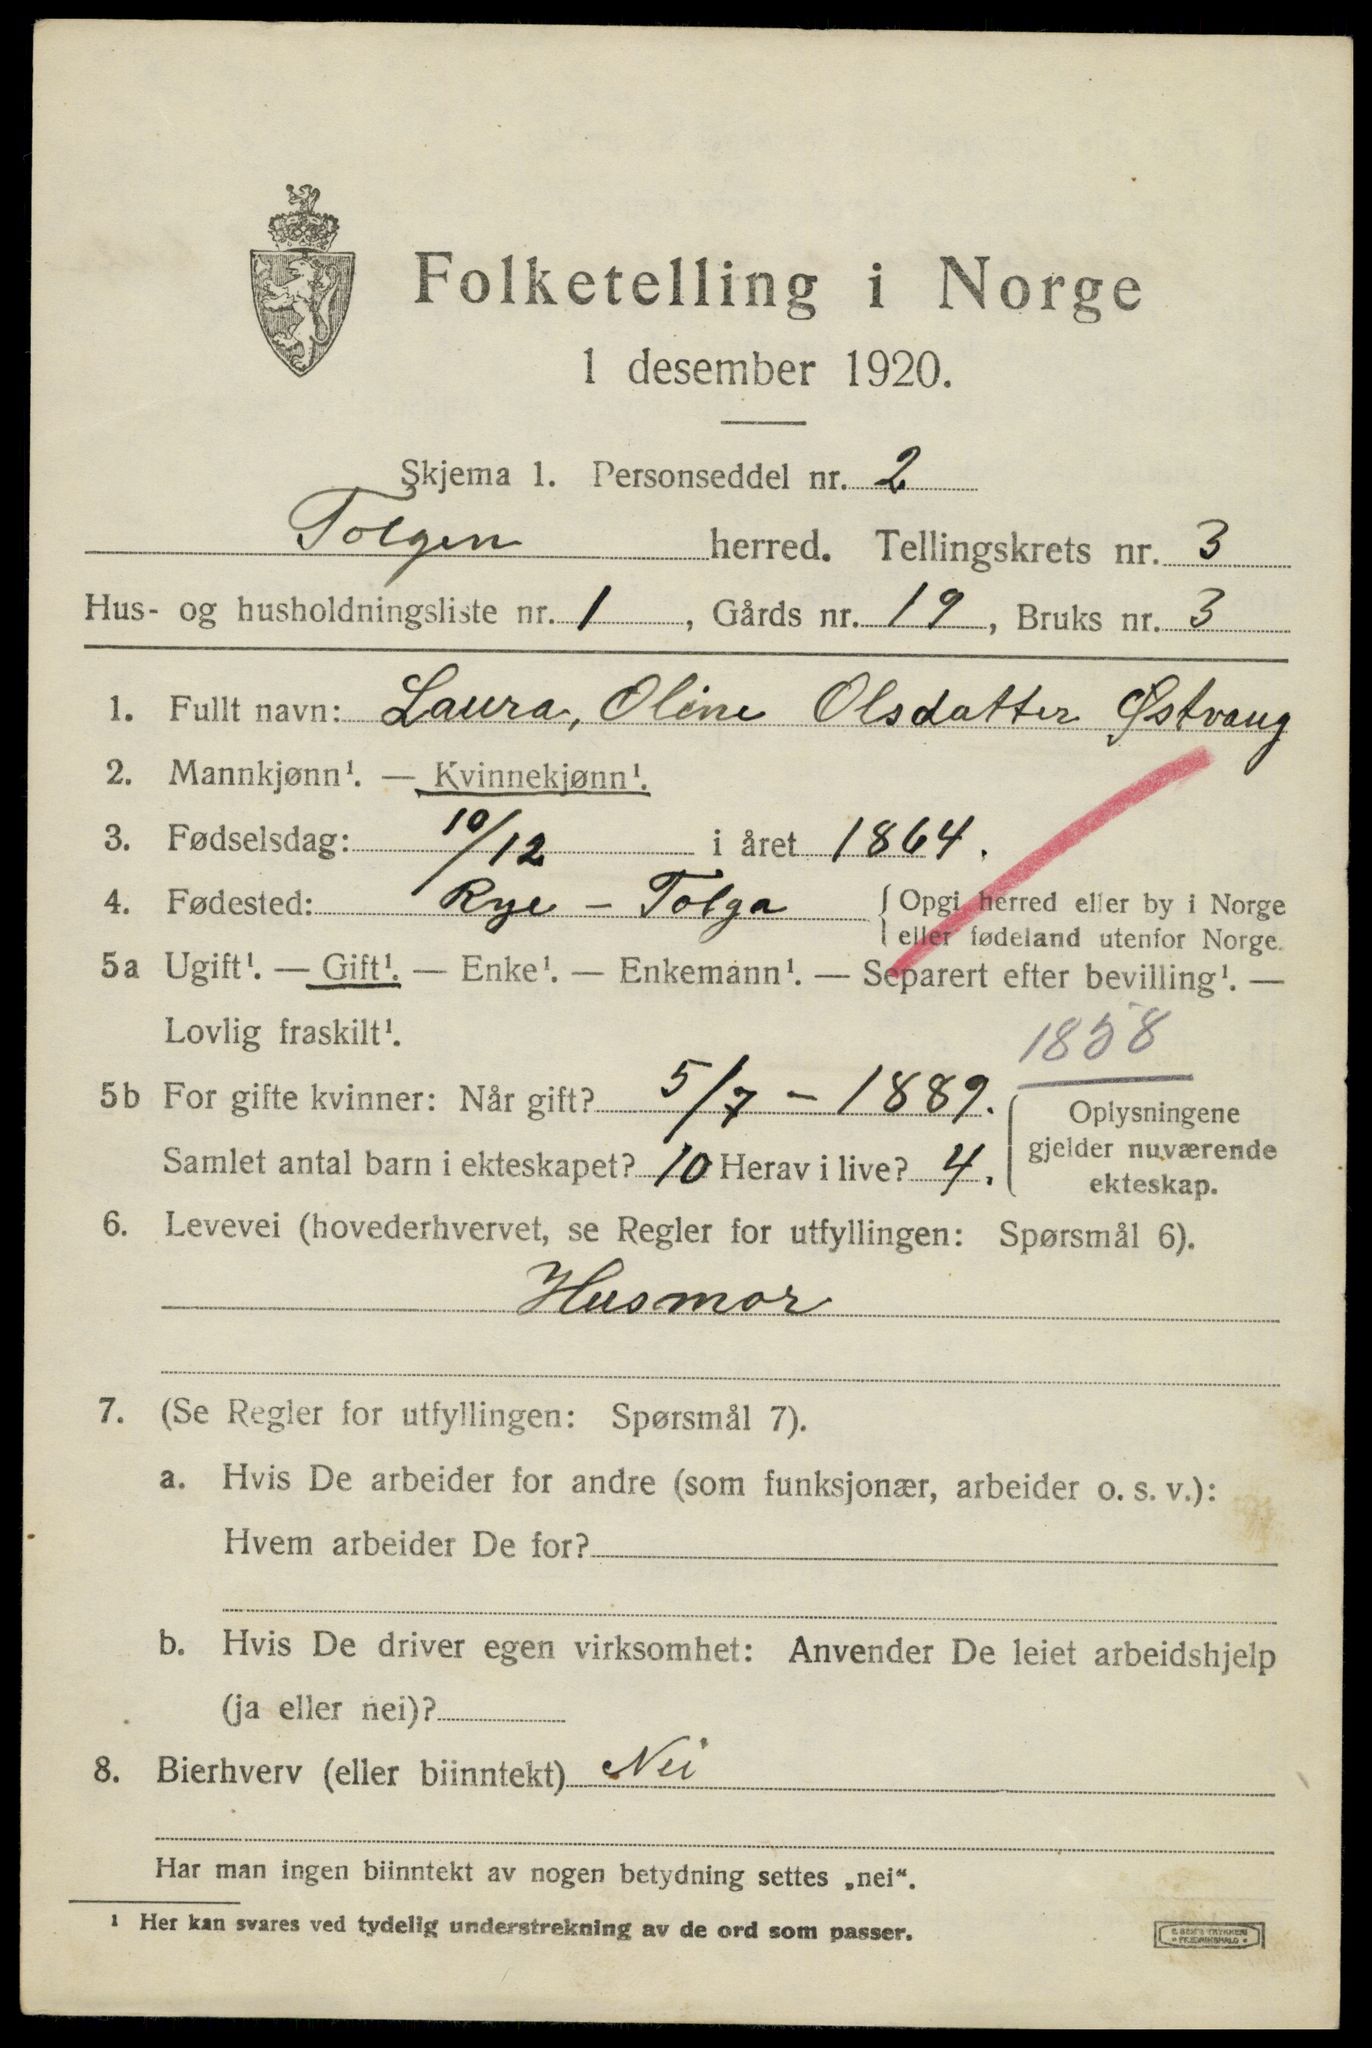 Folketelling i Norge
1 desember 1920.
Skjema 1. Personseddel nr. 2
Tolgen herred. Tellingskrets nr. 3
Hus- og husholdningsliste nr. 1, Gårds nr. 19, Bruks nr. 3
1. Fullt navn: Laura, Oline Olsdatter Østvang
2. Mannkjønn¹. — Kvinnekjønn¹.
3. Fødselsdag: 10/12 i året 1864.
4. Fødested: Rye – Tolga { Opgi herred eller by i Norge
eller fødeland utenfor Norge.
5a Ugift¹. — Gift¹. — Enke¹. — Enkemann¹. — Separert efter bevilling¹. —
Lovlig fraskilt¹.
1858
5b For gifte kvinner: Når gift? 5/7 – 1889.
Samlet antal barn i ekteskapet? 10 Herav i live? 4.
Oplysningene
gjelder nuværende
ekteskap.
6. Levevei (hovederhvervet, se Regler for utfyllingen: Spørsmål 6).
Husmor
7. (Se Regler for utfyllingen: Spørsmål 7).
a. Hvis De arbeider for andre (som funksjonær, arbeider o. s. v.):
Hvem arbeider De for?
b. Hvis De driver egen virksomhet: Anvender De leiet arbeidshjelp
(ja eller nei)?
8. Bierhverv (eller biinntekt) Nei
Har man ingen biinntekt av nogen betydning settes „nei“.
¹ Her kan svares ved tydelig understrekning av de ord som passer.